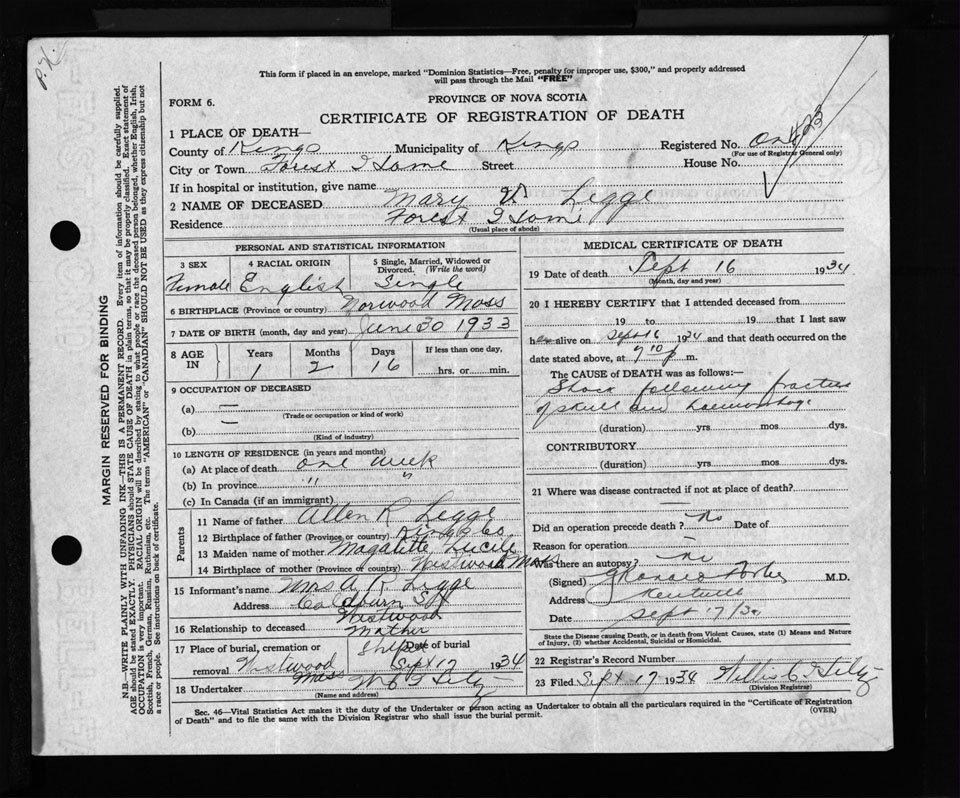 P.H.
This form if placed in an envelope, marked "Dominion Statistics—Free, penalty for improper use, $300," and properly addressed
will pass through the Mail "FREE"
FORM 6.
PROVINCE OF NOVA SCOTIA
CERTIFICATE OF REGISTRATION OF DEATH
1 PLACE OF DEATH—
County of Kings Municipality of Kings Registered No.
(For use of Registrar General only)
City or Town Forest Home Street House No.
If in hospital or institution, give name
2 NAME OF DECEASED Mary V. Legge
Residence Forest Home
(Usual place of abode)
PERSONAL AND STATISTICAL INFORMATION
3 SEX 4 RACIAL ORIGIN 5 Single, Married, Widowed or
Divorced. (Write the word)
Female English Single
6 BIRTHPLACE (Province or country) Norwood Mass
7 DATE OF BIRTH (month, day and year) June 30 1933
8 AGE IN Years Months Days If less than one day,
1 2 16 hrs. or min.
9 OCCUPATION OF DECEASED
(a) —
(Trade or occupation or kind of work)
(b) —
(Kind of industry)
10 LENGTH OF RESIDENCE (in years and months)
(a) At place of death one week
(b) In province " "
(c) In Canada (if an immigrant)
Parents
11 Name of father Allen R Legge
12 Birthplace of father (Province or country) Kings Co
13 Maiden name of mother Lucille
14 Birthplace of mother (Province or country) Westwood Mass
15 Informant's name Mrs A. R. Legge
Address Coldburn St
Westwood
16 Relationship to deceased Mother
17 Place of burial, cremation or removal Westwood Mass Date of burial Sept 17 1934
18 Undertaker
(Name and address)
MEDICAL CERTIFICATE OF DEATH
19 Date of death Sept 16 1934
(Month, day and year)
20 I HEREBY CERTIFY that I attended deceased from
19 to 19 that I last saw
her alive on Sept 16 1934 and that death occurred on the
date stated above, at 7 10 p m.
The CAUSE of DEATH was as follows:—
Shock following fracture
of skull and haemorrhage
(duration) yrs. mos. dys.
CONTRIBUTORY
(duration) yrs. mos. dys.
21 Where was disease contracted if not at place of death?
Did an operation precede death? No Date of
Reason for operation —
Was there an autopsy? No
(Signed) M.D.
Address Kentville
Date Sept 17/34
State the Disease causing Death, or in death from Violent Causes, state (1) Means and Nature
of Injury, (2) whether Accidental, Suicidal or Homicidal.
22 Registrar's Record Number
23 Filed Sept 17 1934 Willis C
(Division Registrar)
Sec. 46—Vital Statistics Act makes it the duty of the Undertaker or person acting as Undertaker to obtain all the particulars required in the "Certificate of Registration
of Death" and to file the same with the Division Registrar who shall issue the burial permit.
(OVER)
MARGIN RESERVED FOR BINDING
N.B.—WRITE PLAINLY WITH UNFADING INK—THIS IS A PERMANENT RECORD. Every item of information should be carefully supplied.
AGE should be stated EXACTLY. PHYSICIANS should STATE CAUSE OF DEATH in plain terms, so that it may be properly classified. Exact statement of
OCCUPATION is very important. RACIAL ORIGIN will be described by stating to what people or race the deceased person belonged, whether English, Irish,
Scottish, French, German, Russian, Ruthenian, etc. The terms "AMERICAN" or "CANADIAN" SHOULD NOT BE USED as they express citizenship but not
a race or people. See instructions on back of certificate.